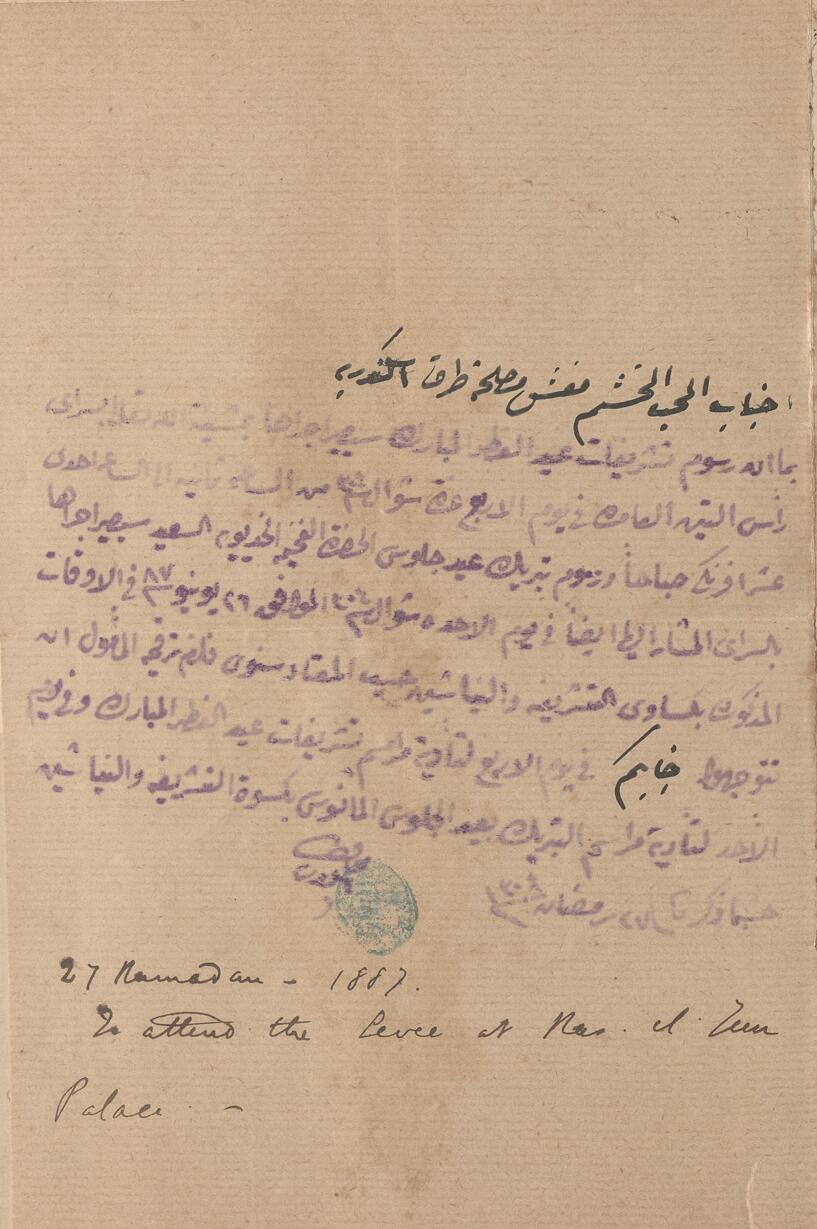 جناب المحب المحتشم مفتش مصلحة طرف اسكندريه
بما ان رسوم تشريفات عيد الفطر المبارك سيصير اجراها بمشيئة الله تعالى بسراى
رأس التين العامره فى يوم الاربع غرة شوال سنة من الساعه ثانيه الى الساعه احدى
عشر افرنكى صباحاً ورسوم تبريك عيد جلوس الحضرة الفخيمه الخديويه السعيد سيصير اجراها
بالسراى المشار اليها ايضاً فى يوم الاحد ٥ شوال سنة الموافق ٢٦ يونيو سنة ٨٧ فى الاوقات
المذكوره بكساوى التشريفه والنياشين حسب المعتاد سنوى فلزم ترقيمه المأمول ان
تتوجهوا جنابكم فى يوم الاربع لتأدية مراسم تشريفات عيد الفطر المبارك وفى يوم
الأحد لتأدية مراسم التبريك بعيد الجلوس المأنوس بكسوة التشريفه والنياشين
حسبما ذكر ٢٧ رمضان سنة
27 Ramadan - 1887.
To attend the Levee at Ras el Teen
Palace. -